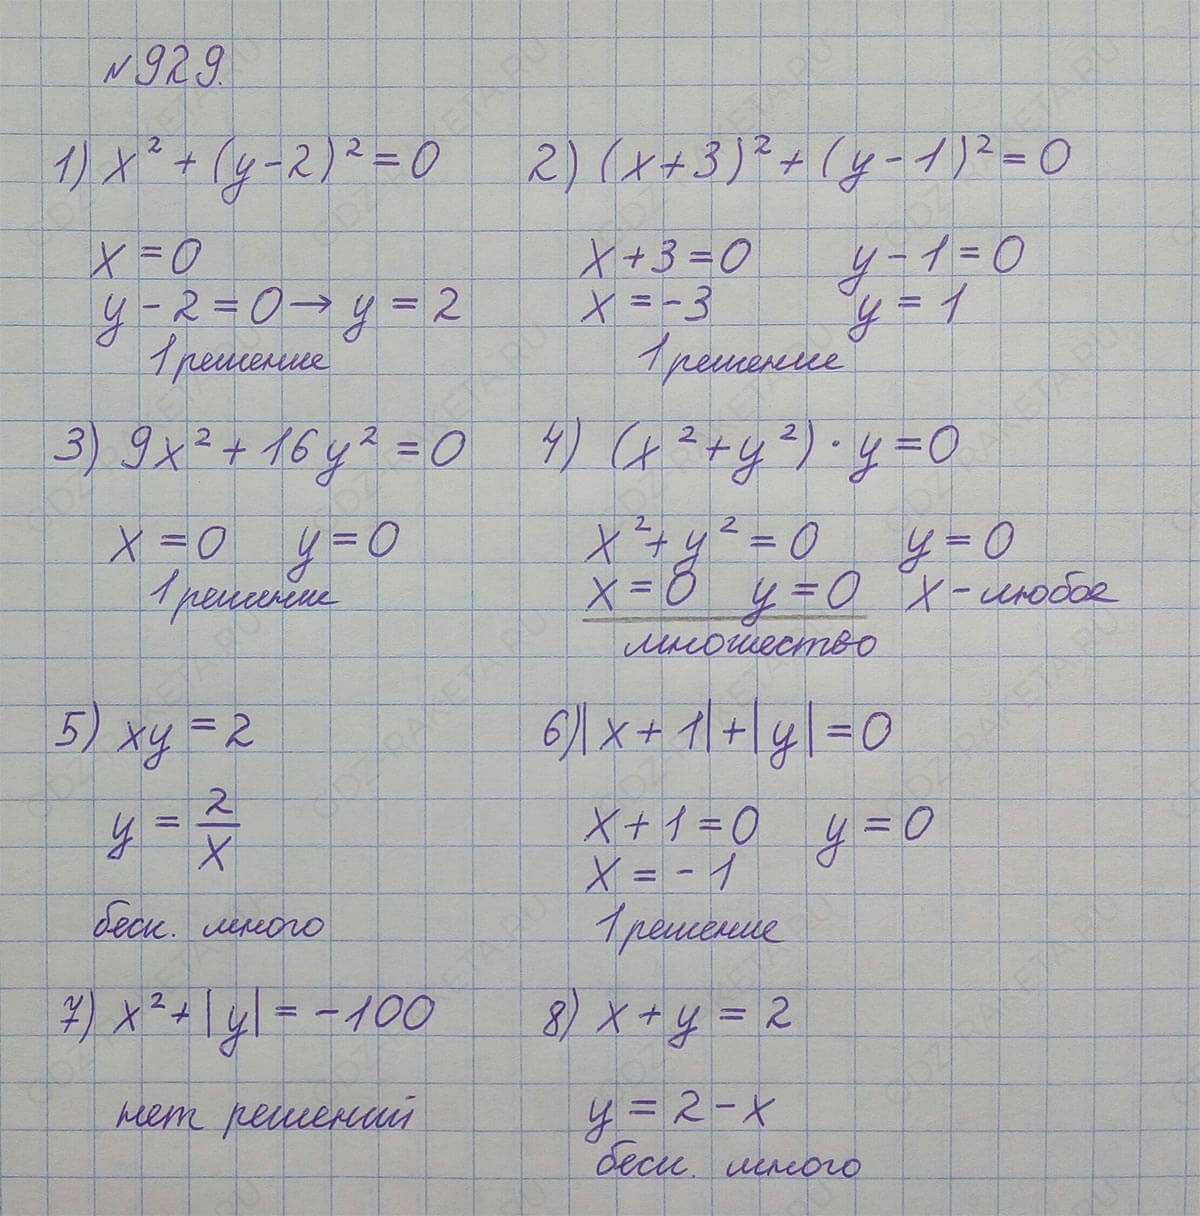 №929.
1) x² + (y-2)² = 0
x = 0
y - 2 = 0 → y = 2
1 решение
2) (x+3)² + (y-1)² = 0
x + 3 = 0 y - 1 = 0
x = -3 y = 1
1 решение
3) 9x² + 16y² = 0
x = 0 y = 0
1 решение
4) (x² + y²) · y = 0
x² + y² = 0 y = 0
x = 0 y = 0 x - любое
множество
5) xy = 2
y = 2/x
беск. много
6) |x + 1| + |y| = 0
x + 1 = 0 y = 0
x = -1
1 решение
7) x² + |y| = -100
нет решений
8) x + y = 2
y = 2 - x
беск. много